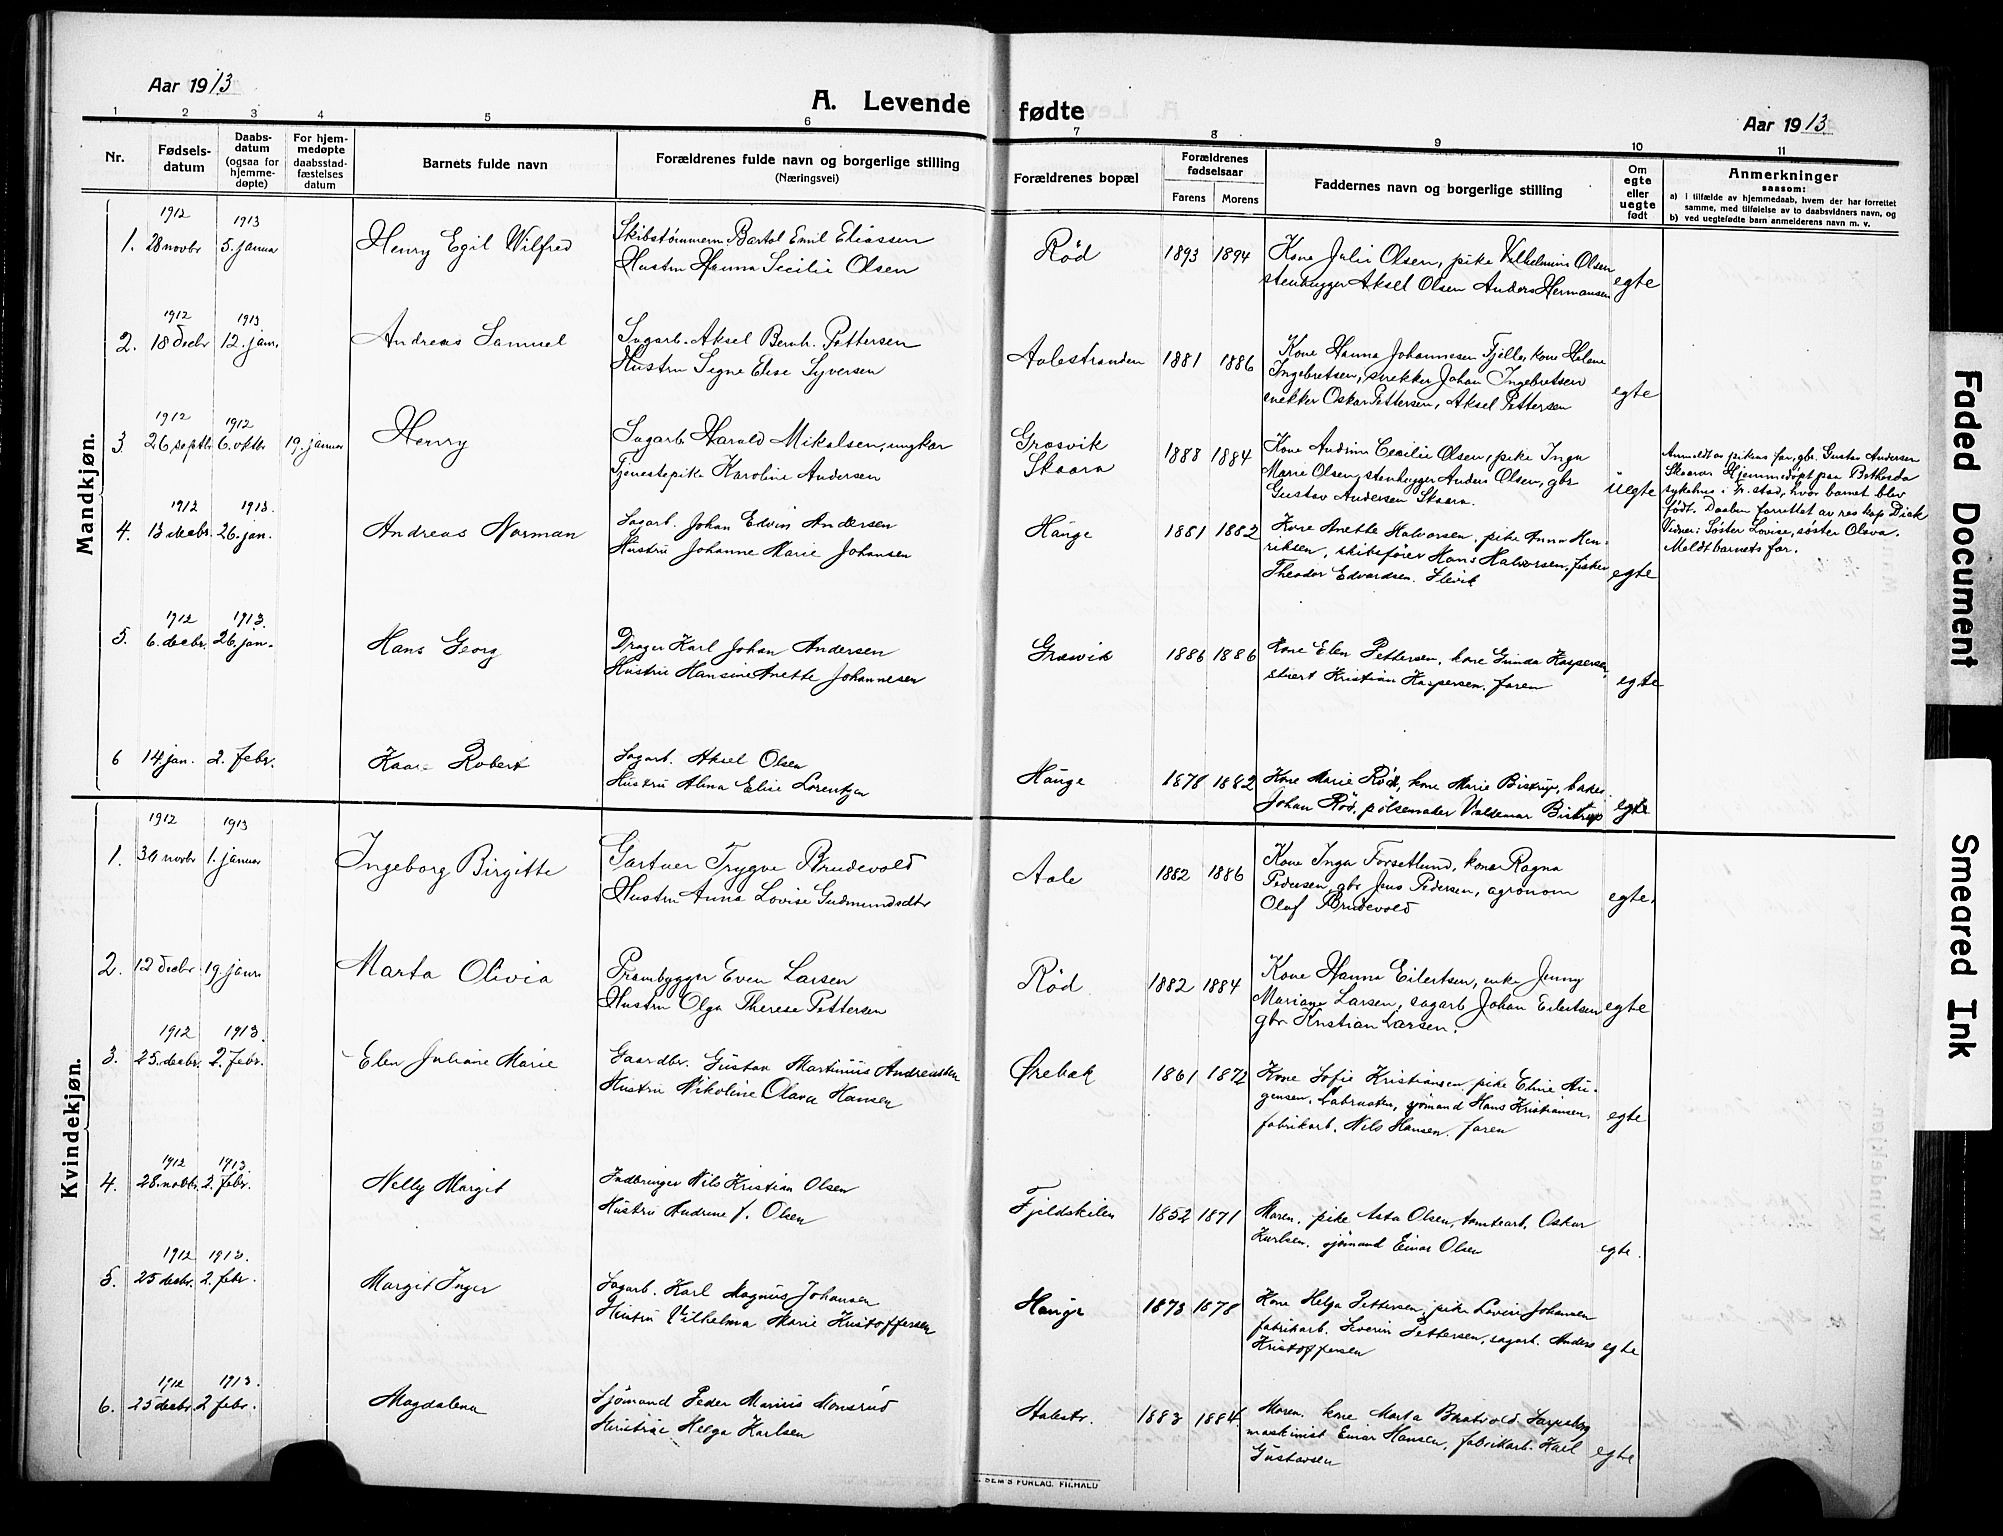 Aar 1913
A. Levende fødte
Aar 1913
1 2 3 4 5 6 7 8 9 10 11
Nr.
Fødsels-
datum
Daabs-
datum
(ogsaa for
hjemme-
døpte)
For hjem-
medøpte
daabsstad-
fæstelses
datum
Barnets fulde navn
Forældrenes fulde navn og borgerlige stilling
(Næringsvei)
Forældrenes bopæl
Forældrenes
fødselsaar
Farens Morens
Faddernes navn og borgerlige stilling
Om
egte
eller
uegte
født
Anmerkninger
saasom:
a) i tilfælde av hjemmedaab, hvem der har forrettet
samme, med tilføielse av to daabsvidners navn, og
b) ved uegtefødte barn anmelderens navn m. v.
Mandkjøn.
1912 1913
1. 28 novbr 5. januar
Henry Egil Wilfred
Skibstømmerm. Bartol Emil Eliassen
Hustru Hanna Secilie Olsen
Rød 1893 1894
Kone Julie Olsen, pike Vilhelmine Olsen
stenhugger Aksel Olsen Anders Hermansen
egte
1912 1913
2. 18 decbr 12. janr.
Andreas Samuel
Sagarb. Aksel Bernh. Pettersen
Hustru Signe Elise Syversen
Aalestranden 1881 1886
Kone Hanna Johannesen Fjelle, kone Helene
Ingebretsen, snekker Johan Ingebretsen
snekker Oskar Pettersen, Aksel Pettersen
egte
1912 1912
3 26 septbr 6. oktbr 19. januar
Henry
Sagarb. Harald Mikalsen, ungkar
Tjenestepike Karoline Andersen
Græsvik
Skaara
1888 1884
Kone Andrine Cecilie Olsen, pike Inga
Marie Olsen, stenhugger Anders Olsen, gbr
Gustav Andersen Skaara.
uegte
Anmeldt av pikens far, gbr. Gustav Andersen
Skaara. Hjemmedøpt paa Bethesda
sykehus i Fr.stad, hvor barnet blev
født. Daaben forrettet av res. kap. Dick
Vidner: Søster Lovise, søster Olava.
Meldt barnets far.
1912 1913.
4. 13 decbr. 26. jan.
Andreas Norman
Sagarb. Johan Edvin Andersen
Hustru Johanne Marie Johansen
Hauge 1881 1882
Kone Anette Halvorsen, pike Anna Hen-
riksen, skibsfører Hans Halvorsen, fisker
Theodor Edvardsen. Slevik
egte
1912 1913.
5. 6. decbr. 26. jan.
Hans Georg
Drager Karl Johan Andersen
Hustru Hansine Anette Johannesen
Græsvik 1886 1886
Kone Elen Pettersen, kone Gunda Kaspersen,
stuert Kristian Kaspersen, faren
egte
6 14 jan. 2. febr.
Kaare Robert
Sagarb. Aksel Olsen
Hustru Alma Elise Lorentzen
Hauge 1878 1882
Kone Marie Rød, kone Marie Bistrup, baker
Johan Rød, pølsemaker Valdemar Bistrup
egte
Kvindekjøn.
1912 1913
1. 30 novbr 1. januar
Ingeborg Birgitte
Gartner Trygve Brudevold
Hustru Anna Lovise Gudmundsdtr
Aale 1882 1886
Kone Inga Forsetlund, kone Ragna
Pedersen, gbr Jens Pedersen, agronom
Olaf Brudevold
egte.
2. 12 decbr 19. janr.
Marta Olivia
Prambygger Even Larsen
Hustru Olga Therese Pettersen
Rød 1882 1884
Kone Hanna Eilertsen, enke Jenny
Mariane Larsen, sagarb Johan Eilertsen
gbr Kristian Larsen.
egte
1912 1913.
3. 25. decbr. 2. febr.
Elen Juliane Marie
Gaardbr. Gustav Martinius Andreassen
Hustru Nikoline Olava Hansen
Ørebæk 1861 1872
Kone Sofie Kristiansen, pike Eline Au-
gensen, Labraaten, sjømand Hans Kristiansen,
fabrikarb. Nils Hansen, faren
egte
1912 1913.
4. 28. novbr. 2. febr.
Nelly Margit
Indbringer Nils Kristian Olsen
Hustru Andrine f. Olsen
Fjeldskilen 1852 1871
Moren, pike Asta Olsen, tomtearb. Oskar
Karlsen, sjømand Einar Olsen
egte.
1912 1913.
5. 25 decbr. 2. febr.
Margit Inger
Sagarb. Karl Magnus Johansen
Hustru Vilhelma Marie Kristoffersen
Hauge 1873 1878
Kone Helga Pettersen, pike Lovise Johansen
fabrikarb. Severin Pettersen, sagarb. Anders
Kristoffersen
egte
1912 1913.
6. 25 decbr. 2 febr.
Magdalena
Sjømand Peder Marius Monsrud
Hustru Helga Karlsen
Aalestr. 1883 1884
Moren, kone Marta Bratvold Sarpsborg
maskinist Einar Hansen, fabrikarb. Karl
Gustavsen
egte
SEM'S FORLAG. FR.HALD
Faded Document
Smeared Ink